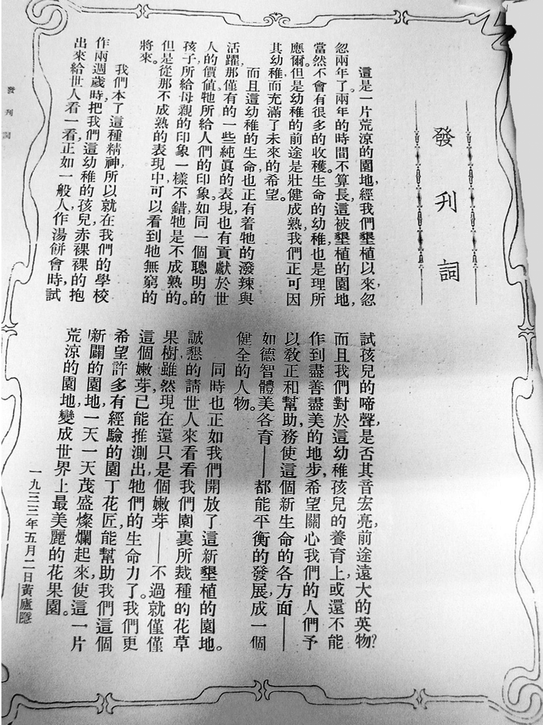 發刊詞
這是一片荒涼的園地，經我們墾植以來，忽
忽兩年了，兩年的時間不算長，這被墾植的園地，
當然不會有很多的收穫，生命的幼稚也是理所
應爾，但是幼稚的前途是壯健成熟，我們正可因
其幼稚而充滿了未來的希望。
而且這幼稚的生命也正有着牠的潑辣與
活躍，那僅有的一些純眞的表現，也有貢獻於世
人的價值，牠所給人們的印象，如同一個聰明的
孩子所給母親的印象一樣，不錯，牠是不成熟的。
但是從那不成熟的表現中，可以看到牠無窮的
將來。
我們本了這種精神，所以就在我們的學校
作兩週歲時，把我們這幼稚的孩兒，赤裸裸的抱
出來給世人看一看，正如一般人作湯餅會時，試
試孩兒的啼聲，是否其音宏亮，前途遠大的英物？
而且我們對於這幼稚孩兒的養育上，或還不能
作到盡善盡美的地步，希望關心我們的人們，予
以敎正和幫助，務使這個新生命的各方面——
如德智體美各育——都能平衡的發展，成一個
健全的人物。
同時也正如我們開放了這新墾植的園地。
誠懇的請世人來看看我們園裏所栽種的花草
果樹，雖然現在還只是個嫩芽——不過就僅僅
這個嫩芽，已能推測出牠們的生命力了。我們更
希望許多有經驗的園丁花匠，能幫助我們這個
新闢的園地，一天一天茂盛燦爛起來，使這一片
荒涼的園地，變成世界上最美麗的花果園。
一九三三年五月二日黃廬隱
發刊詞